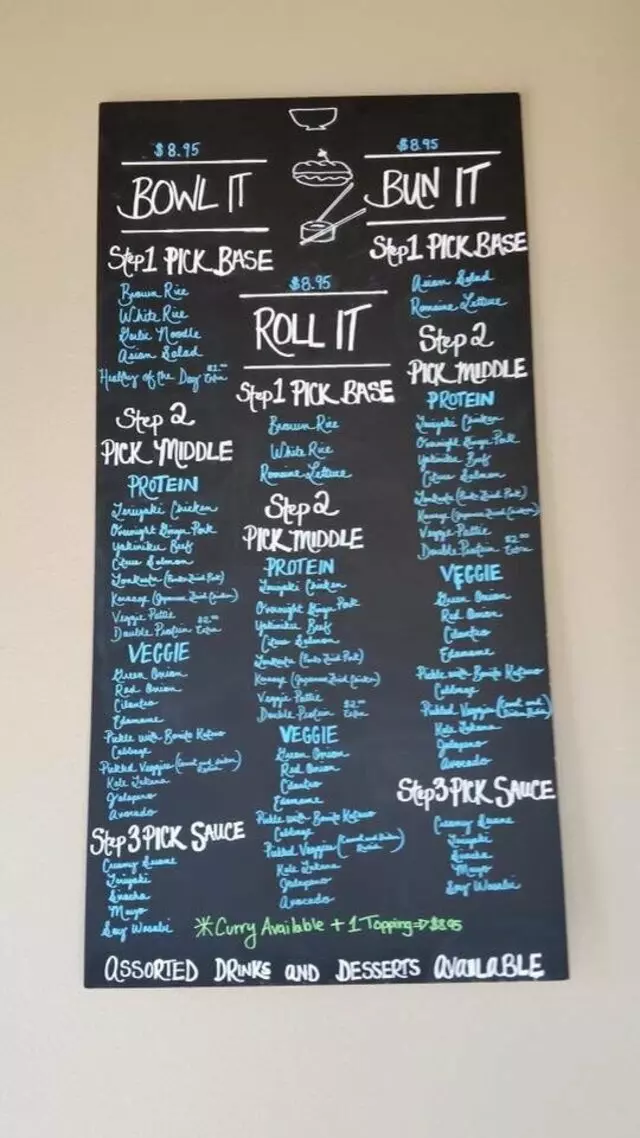 $8.95
BOWL IT
Step 1 PICK BASE
Brown Rice
White Rice
Garlic Noodle
Asian Salad
Healthy of the Day $1.00 Extra
Step 2
PICK MIDDLE
PROTEIN
Teriyaki Chicken
Overnight Ginger Pork
Yakiniku Beef
Citrus Salmon
Tonkatsu (Panko Fried Pork)
Karaage (Japanese Fried Chicken)
Veggie Pattie
Double Protein $2.00 Extra
VEGGIE
Green Onion
Red Onion
Cilantro
Edamame
Pickle with Bonito Katsuo
Cabbage
Pickled Veggies (Carrot and Daikon Radish)
Kale
Jalapeno
Avocado
Step 3 PICK SAUCE
Creamy Sesame
Teriyaki
Sriracha
Mayo
Soy Wasabi
$8.95
ROLL IT
Step 1 PICK BASE
Brown Rice
White Rice
Romaine Lettuce
Step 2
PICK MIDDLE
PROTEIN
Teriyaki Chicken
Overnight Ginger Pork
Yakiniku Beef
Citrus Salmon
Tonkatsu (Panko Fried Pork)
Karaage (Japanese Fried Chicken)
Veggie Pattie
Double Protein $2.00 Extra
VEGGIE
Green Onion
Red Onion
Cilantro
Edamame
Pickle with Bonito Katsuo
Cabbage
Pickled Veggies (Carrot and Daikon
Kale
Jalapeno
Avocado
$8.95
BUN IT
Step 1 PICK BASE
Asian Salad
Romaine Lettuce
Step 2
PICK MIDDLE
PROTEIN
Teriyaki Chicken
Overnight Ginger Pork
Yakiniku Beef
Citrus Salmon
Tonkatsu (Panko Fried Pork)
Karaage (Japanese Fried Chicken)
Veggie Pattie
Double Protein $2.00 Extra
VEGGIE
Green Onion
Red Onion
Cilantro
Edamame
Pickle with Bonito Katsuo
Cabbage
Pickled Veggies (Carrot and Daikon
Kale
Jalapeno
Avocado
Step 3 PICK SAUCE
Creamy Sesame
Teriyaki
Sriracha
Mayo
Soy Wasabi
*Curry Available + 1 Topping => $8.95
ASSORTED DRINKS AND DESSERTS AVAILABLE